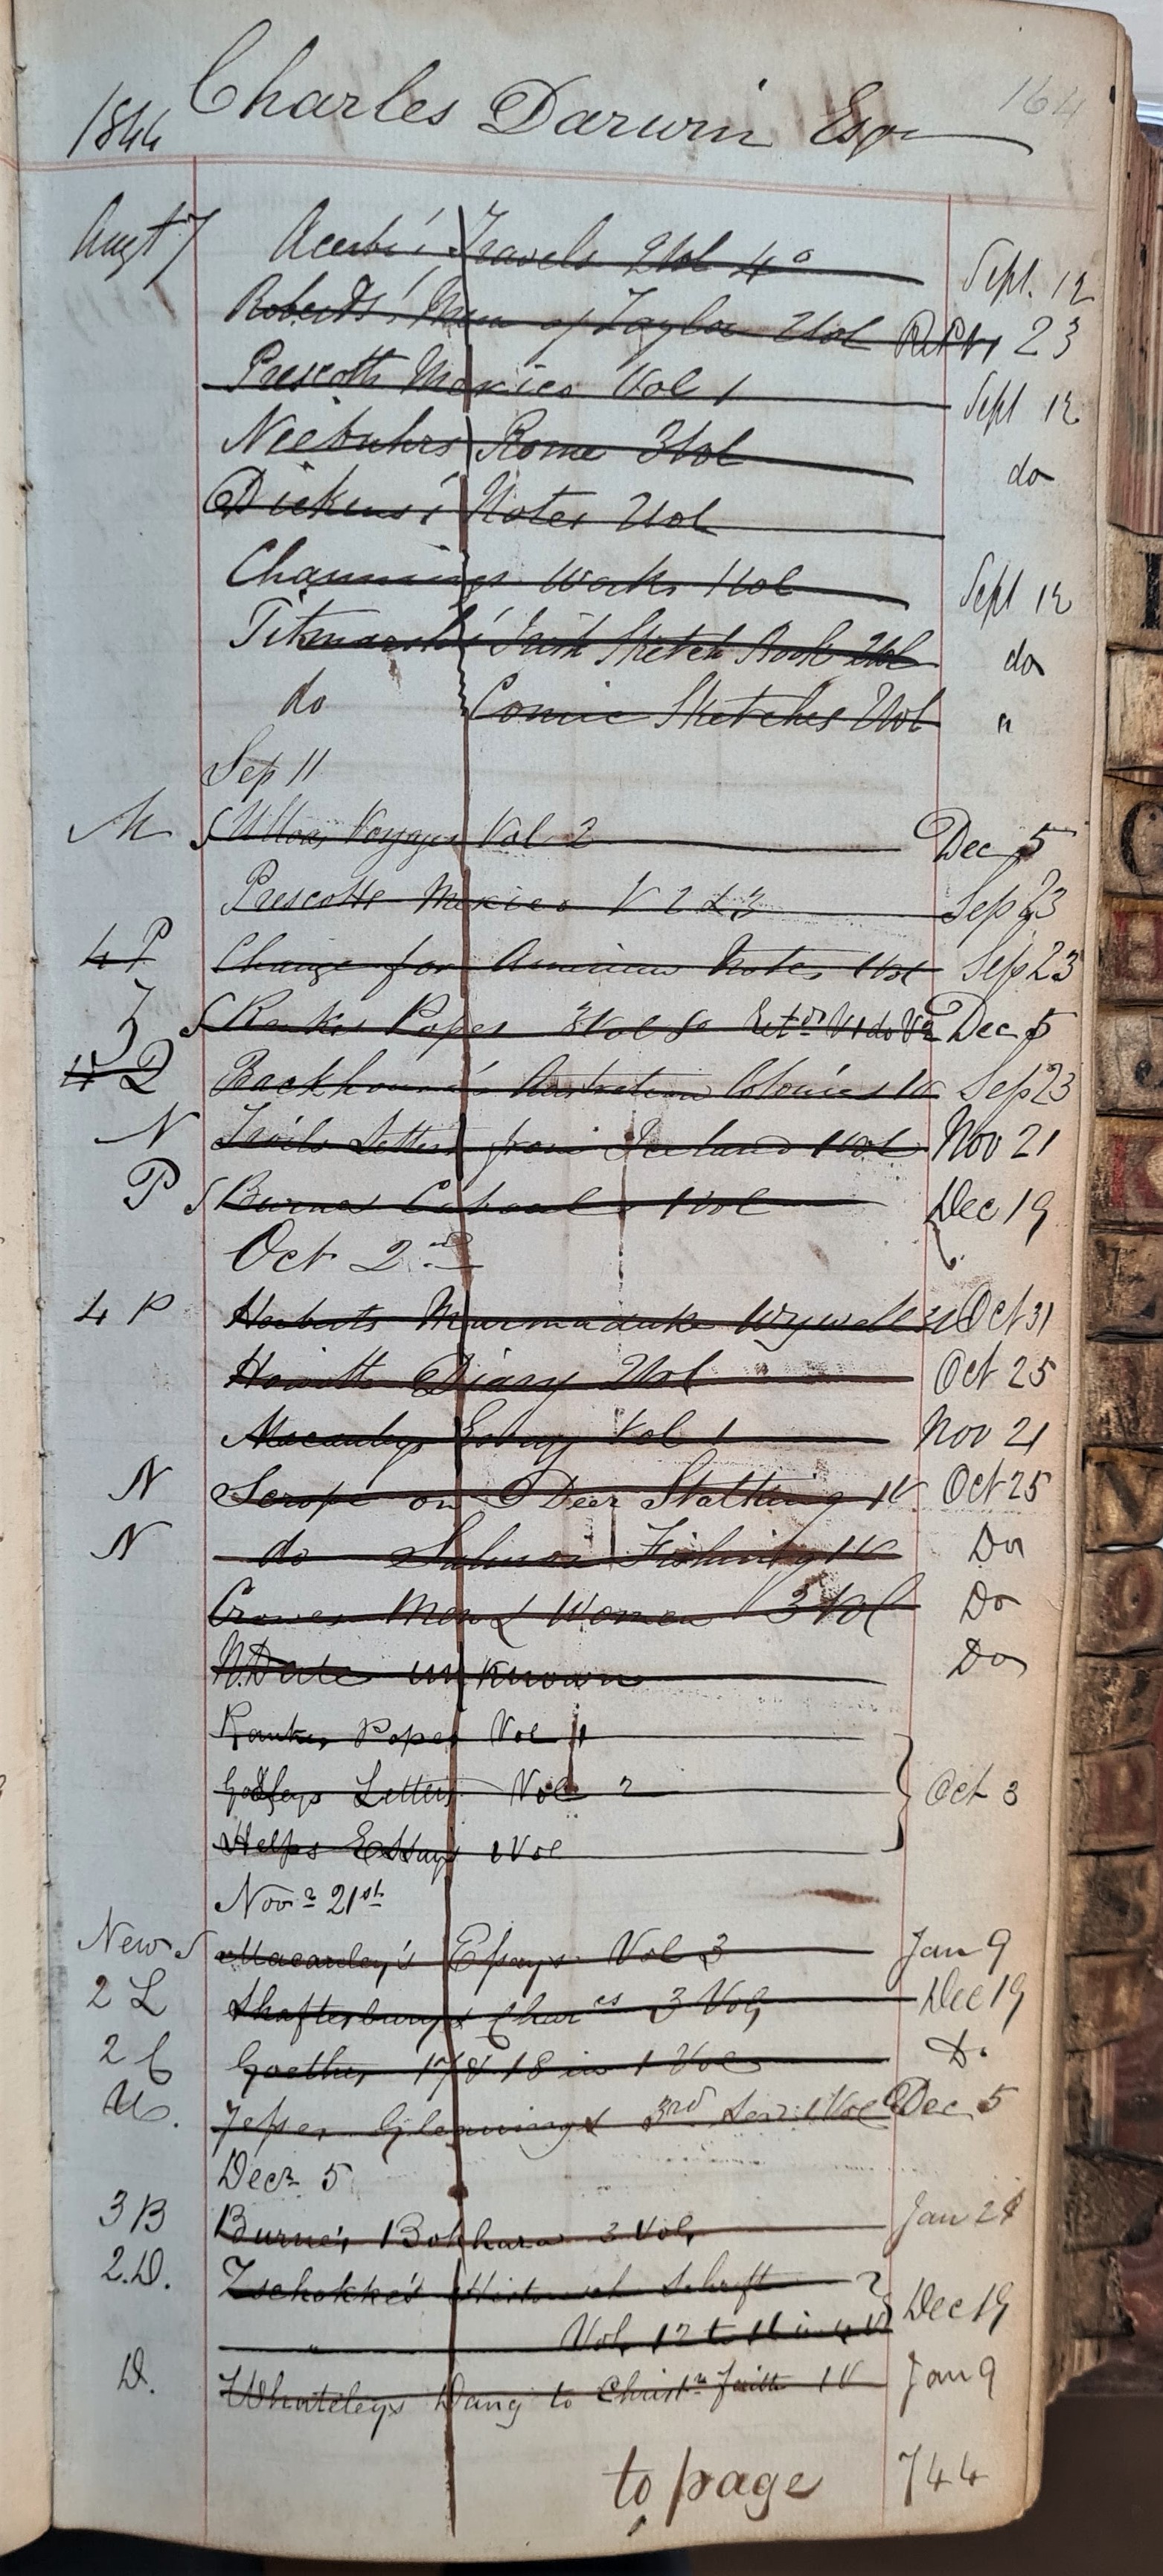 164
1844 Charles Darwin Esqr
Augt 7 Acerbi's Travels 2 Vol 4o Sept. 12
Roberts' Mem of Taylor 2 Vol Rept 23
Prescotts Mexico Vol 1 Sept 12
Niebuhrs Rome 3 Vol do
Dickens's Notes 2 Vol
Channings Works 1 Vol Sept 12
Titmarsh's Irish Sketch Book 2 Vol do
do Comic Sketches 2 Vol "
Sep 11
M Ulloas Voyages Vol 2 Dec 5
Prescotts Mexico V 2 & 3 Sep 23
4 P Change for American Notes 1 Vol Sep 23
Z Rankes Popes 3 Vol 8o Retd V 1 do V 2 Dec 5
4 D Backhouse's Australian Colonies 1 V Sep 23
N Trails Letters from Iceland 1 Vol Nov 21
P Burnes Cabool 1 Vol Dec 19
Oct 2nd
4 P Herberts Marmaduke Wyvell 3 Vol Oct 31
Howitts Diary 2 Vol Oct 25
Macauleys Essays Vol 1 Nov 21
N Scrope on Deer Stalking 1 V Oct 25
N do Salmon Fishing 1 V Do
Crowes Men & Women 3 Vol Do
N. Date unknown Do
Rankes Popes Vol 1
Godleys Letters Vol 2 Oct 3
Helps Essays 1 Vol
Novr 21st
New Macauley's Essays Vol 3 Jan 9
2 L Shaftesburys Charcs 3 Vol Dec 19
2 C Goethes 17 & 18 in 1 Vol Do
U. Jesses Gleanings 3rd Ser 1 Vol Dec 5
Decr 5
3 B Burne's Bokhara 3 Vol Jan 21
2.D. Zschokke's Historisch Schrift
" Vol 12 to 16 in 4 V Dec 19
D. Whateleys Dang to Christn Faith 1 V Jan 9
to page 744